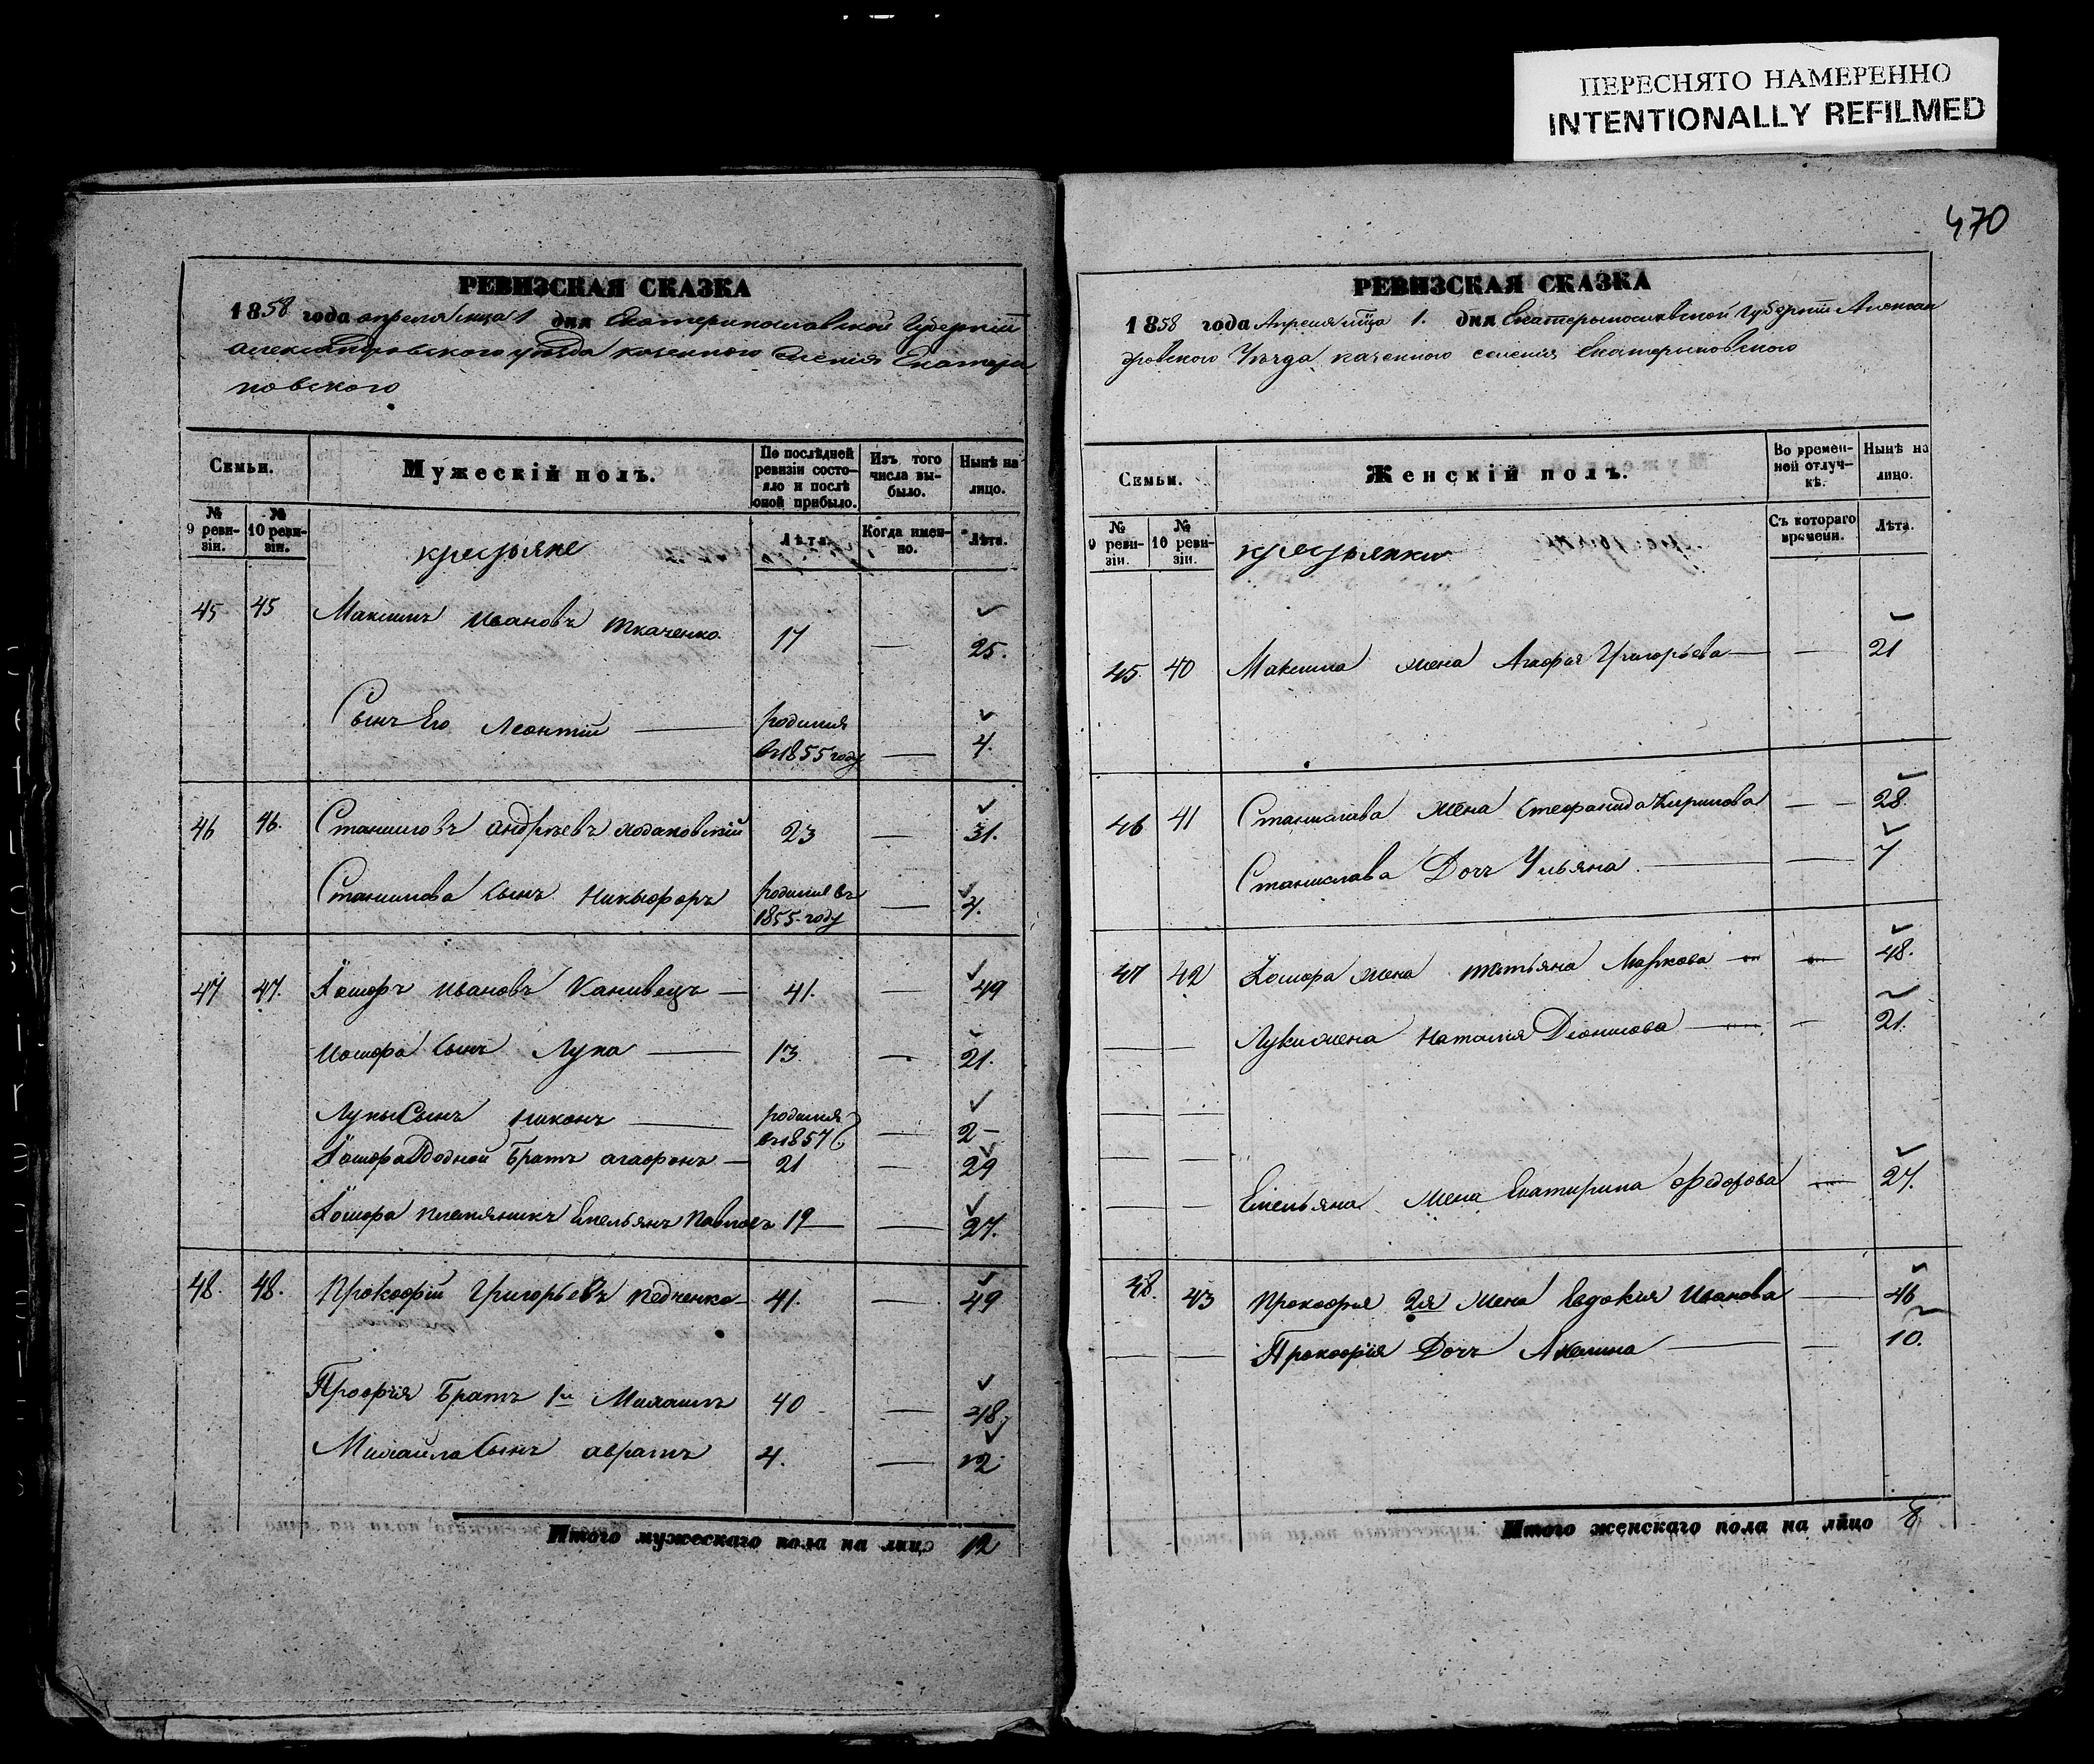 ПЕРЕСНЯТО НАМЕРЕННО
INTENTIONALLY REFILMED
470
РЕВИЗСКАЯ СКАЗКА
1858 года апреля мца 1 дня Екатеринославской Губернии
александровского уезда казенного селения Екатери
новского
Семьи.
Мужескій полъ.
По послѣдней ревизіи состо-яло и послѣ оной прибыло.
Изъ того числа вы-было.
Нынѣ на лицо.
№ 9 реви-зіи.
№ 10 реви-зіи.
крестьяне
Лѣта.
Когда имен-но.
Лѣта.
45 45 Максимъ Ивановъ Ткаченко 17 — 25.
Сынъ Его Леонтій — родился въ 1855 году — 4.
46 46. Станиславъ андреевъ ходаковскій 23 — 31.
Станислова Сынъ Никыфоръ родился въ 1855 году — 4.
47 47. Іосифъ Ивановъ Канивецъ — 41. — 49
Иосифа Сынъ Лука — 13. — 21.
Лукы Сынъ Никонъ — родился въ 1857 — 2 —
Іосифа родной Братъ агафонъ — 21 — 29
Іосифа племяникъ Емельянъ Павловъ 19 — 27.
48. 48. Прокофій Григорьевъ Педченко 41. — 49
Профія Братъ 1й Михаилъ 40 — 48
Михаила Сынъ аврамъ 4. — 12
Итого мужескаго пола на лицо 12
РЕВИЗСКАЯ СКАЗКА
1858 года Апреля мца 1. дня Екатерынославской Губернии Алексан
дровского Уезда казенного селения Екатерыновского
Семьи.
Женскій полъ.
Во времен-ной отлуч-кѣ.
Нынѣ на лицо.
№ 9 реви-зіи.
№ 10 реви-зіи.
крестьянки
Съ котораго времени.
Лѣта.
45. 40 Максима жена Агафия Григорьева — — 21
46 41 Станислава жена Стефанида Кирилова — — 28.
Станислава Дочь Ульяна — — 7
47 42 Іосифа жена татьяна Маркова — — 48.
— — Луки жена Наталия Дионисова — — 21.
— —
— —
— — Емельяна жена Екатирина Федорова — 27.
48. 43 Прокофия 2я жена Евдокия Иванова — 46
— — Прокофия Дочь Акелина — — 10.
Итого женскаго пола на лицо 8